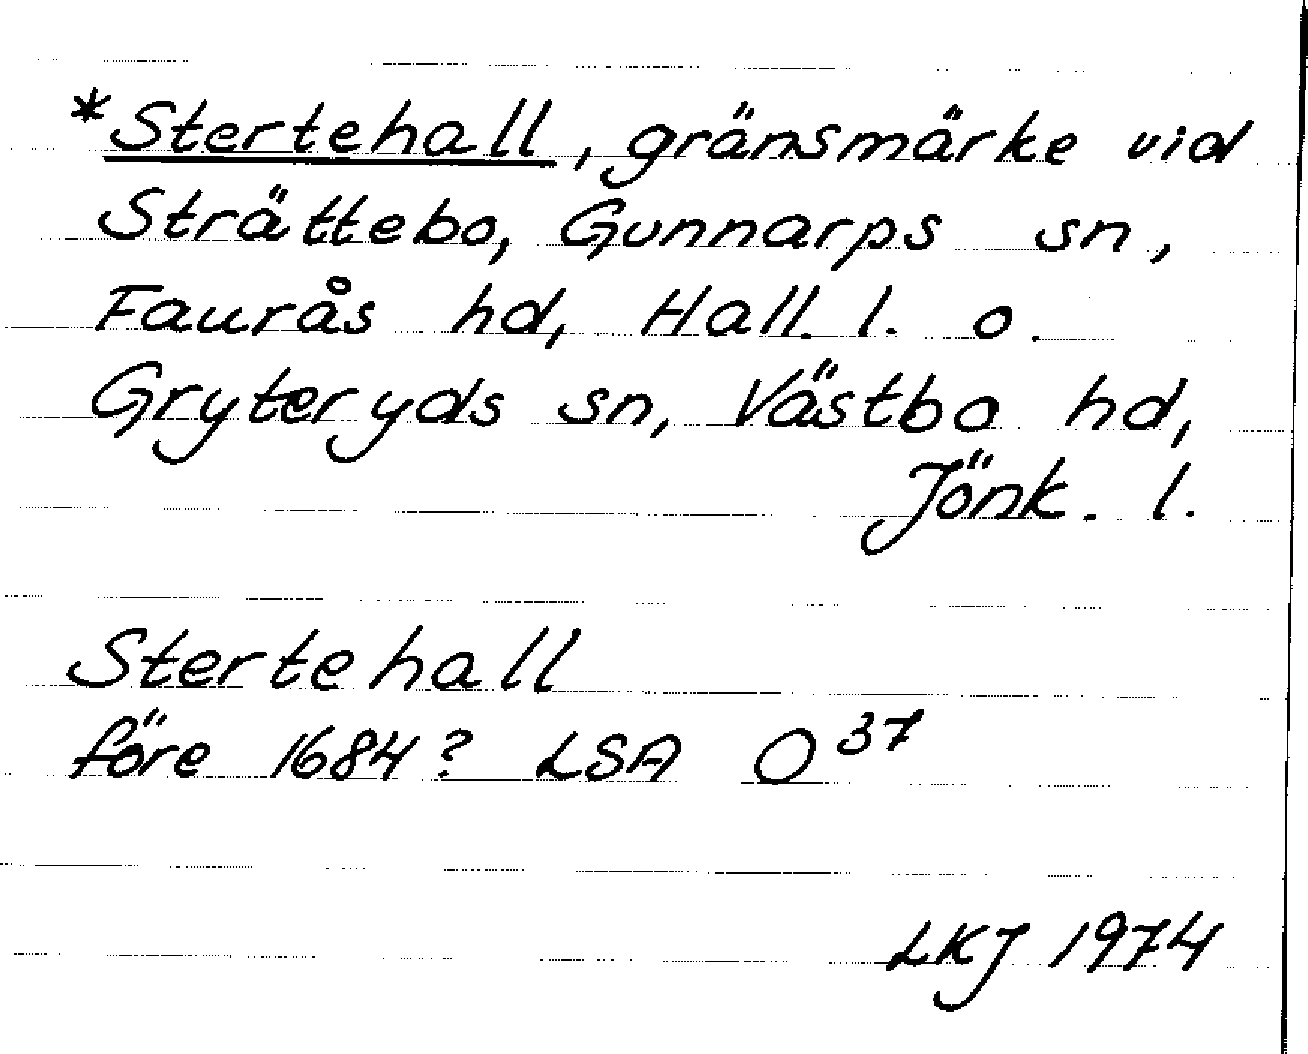 *Stertehall, gränsmärke vid
Strättebo, Gunnarps sn,
Faurås hd, Hall. l. o.
Gryteryds sn, Västbo hd,
Jönk. l.
Stertehall
före 1684? LSA O³⁷
LKJ 1974